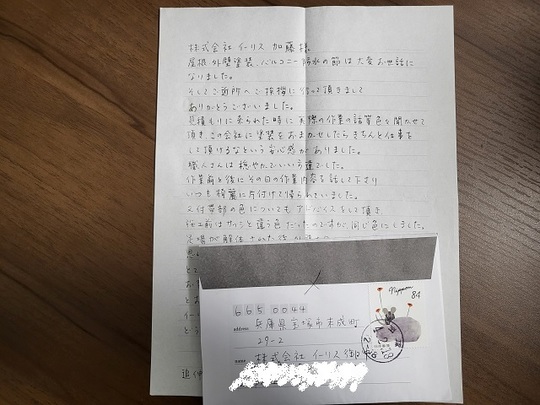 株式会社 イーリス 加藤様
屋根 外壁塗装、バルコニー防水の節は大変お世話に
なりました。
そしてご近所へご挨拶に行って頂きまして
ありがとうございました。
見積もりに来られた時に 実際の作業の話等色々聞かせて
頂き この会社に塗装をおまかせしたら きちんと仕事を
して頂けるなという安心感がありました。
職人さんは 穏やかでいい方達でした。
作業前と後にその日の作業内容を話して下さり
いつも 綺麗に片付けて帰られていました。
又付帯部の色についても アドバイスをして頂き
施工前はサッシと違う色だったのですが 同じ色にしました。
足場が解体された後
665 0044
address
兵庫県宝塚市末成町
29-2
name
株式会社 イーリス 御中
Nippon
84
追